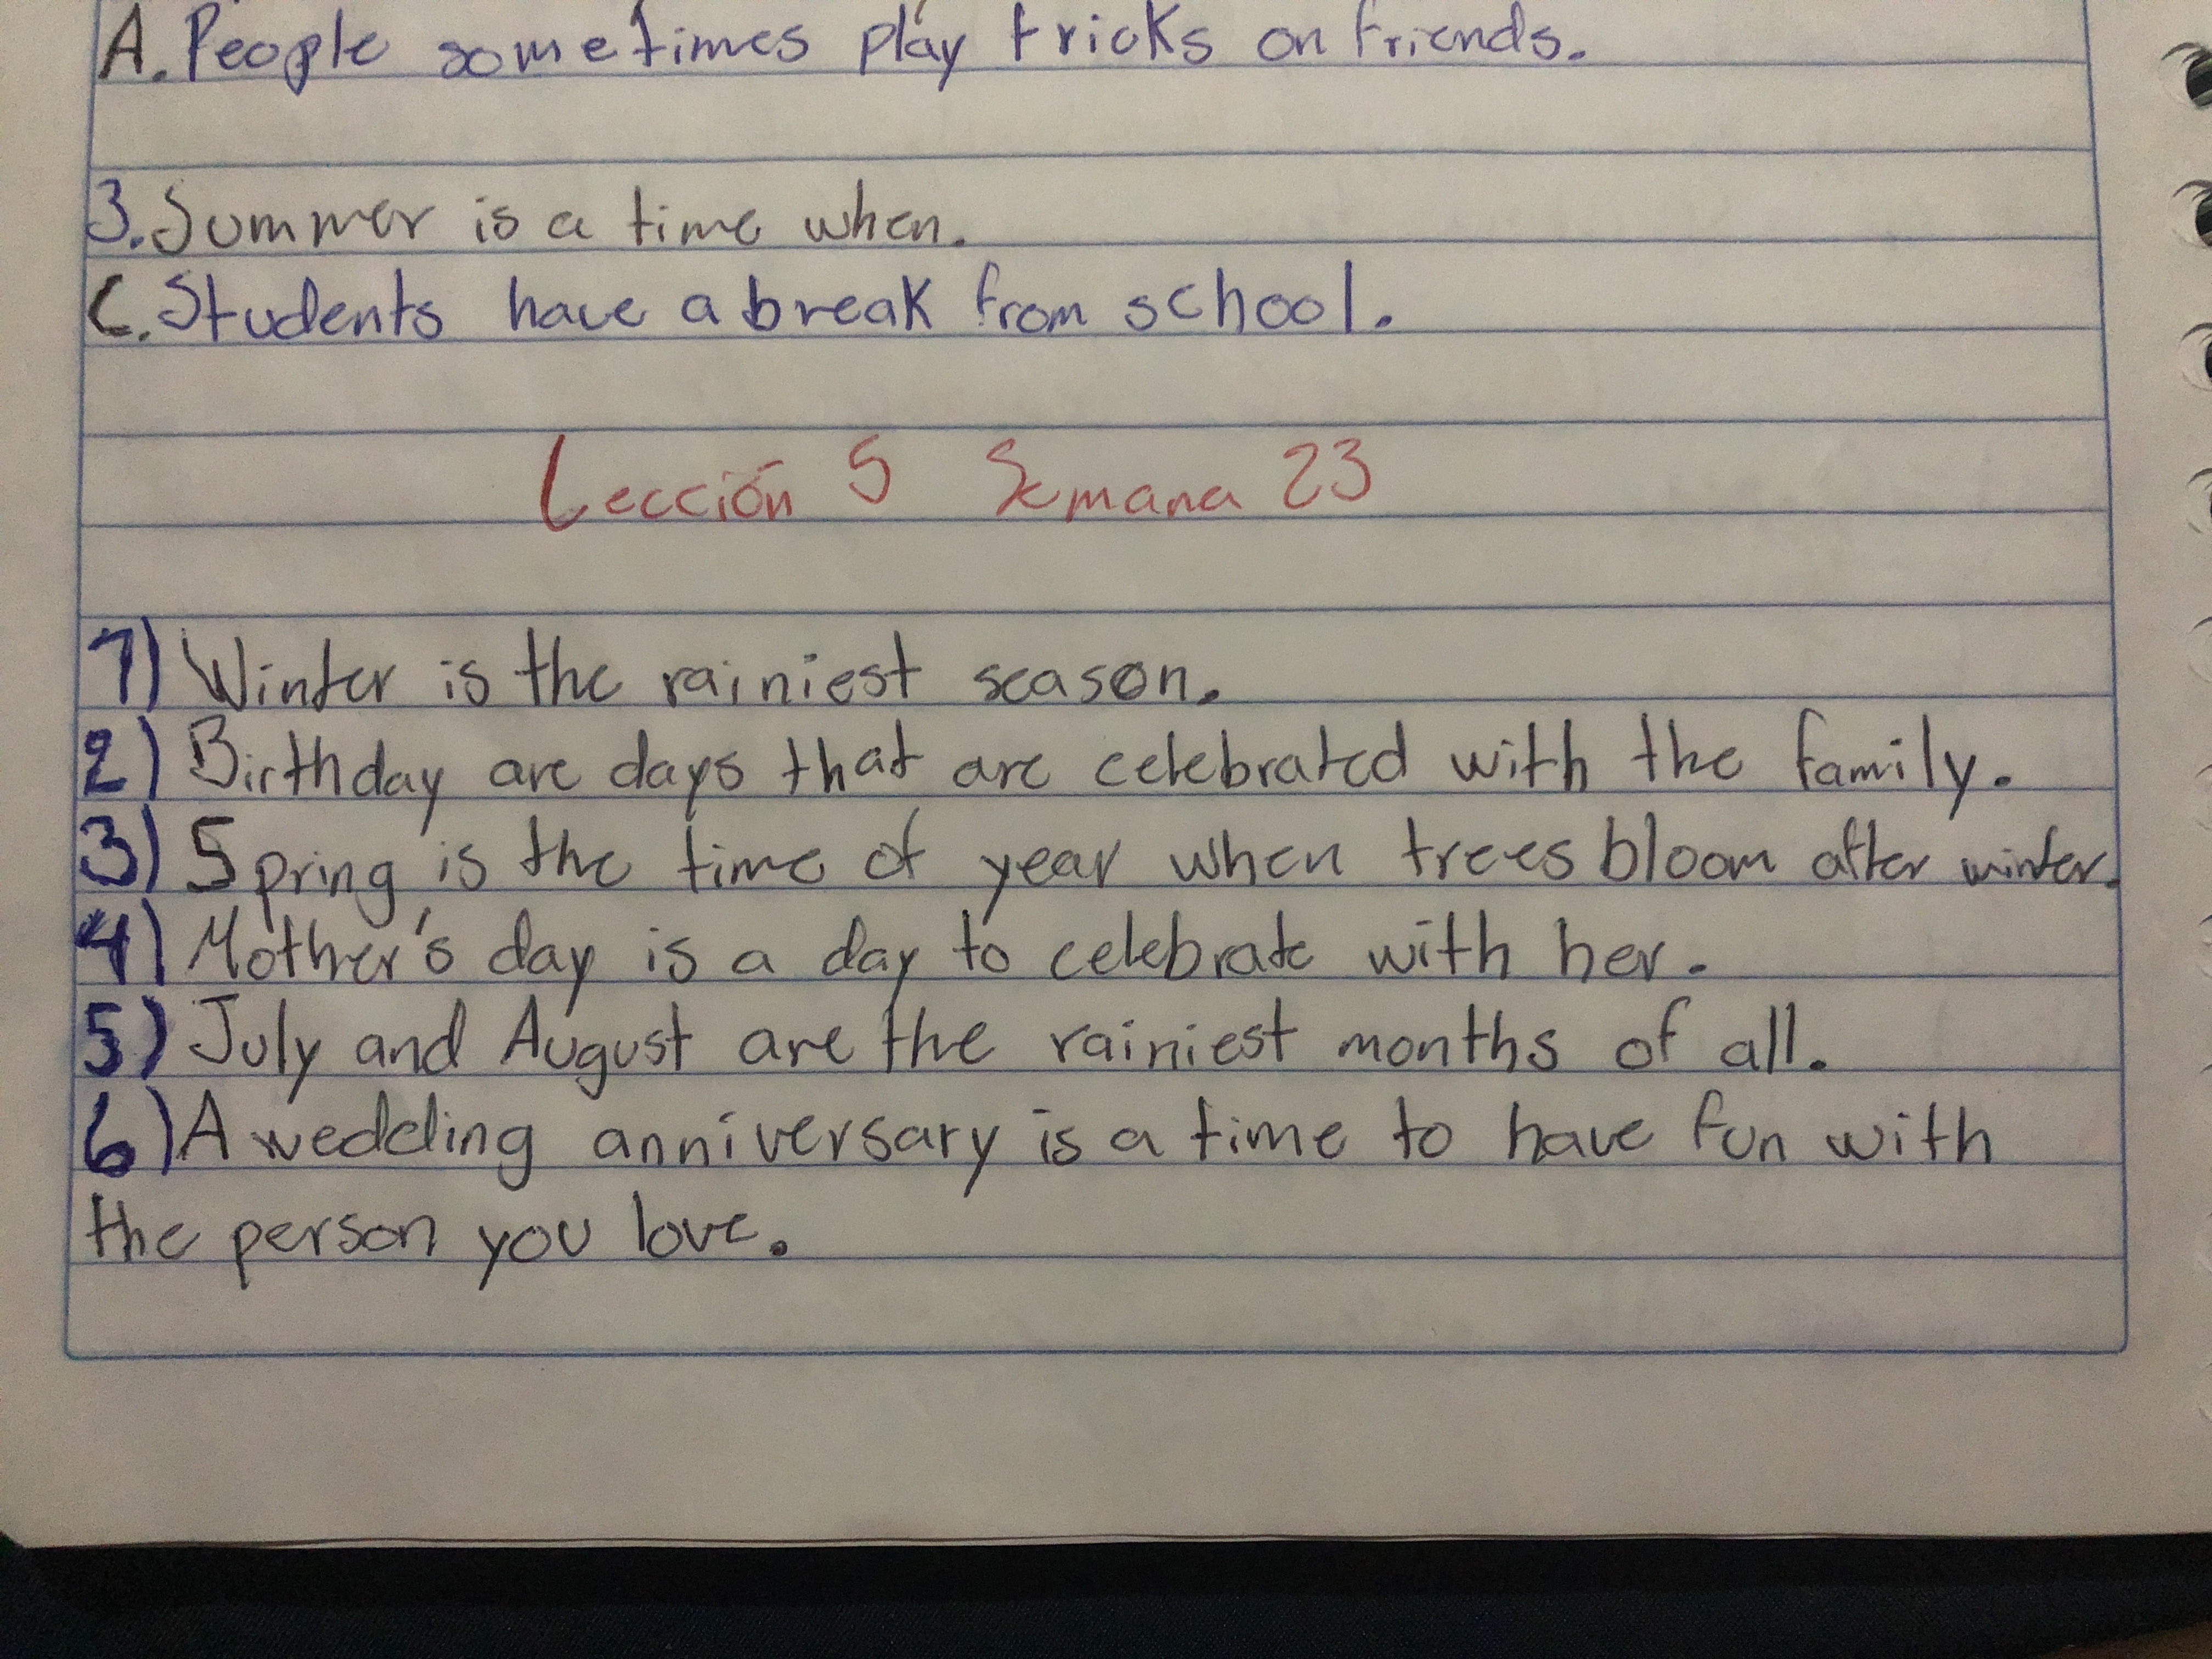 A. People sometimes play tricks on friends.
3. Summer is a time when.
C. Students have a break from school.
Lección 5 Semana 23
1) Winter is the rainiest season.
2) Birthday are days that are celebrated with the family.
3) Spring is the time of year when trees bloom after winter.
4) Mother's day is a day to celebrate with her.
5) July and August are the rainiest months of all.
6) A wedding anniversary is a time to have fun with
the person you love.